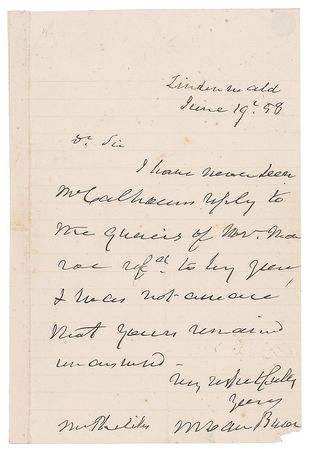 Lindenwald
June 19th 58
Dr Sir
I have never seen
Mr Calhouns reply to
the queries of Mr. Mon
roe refd. to by you
& was not aware
that yours remained
unanswd.
Very respectfully
Yours
M Van Buren